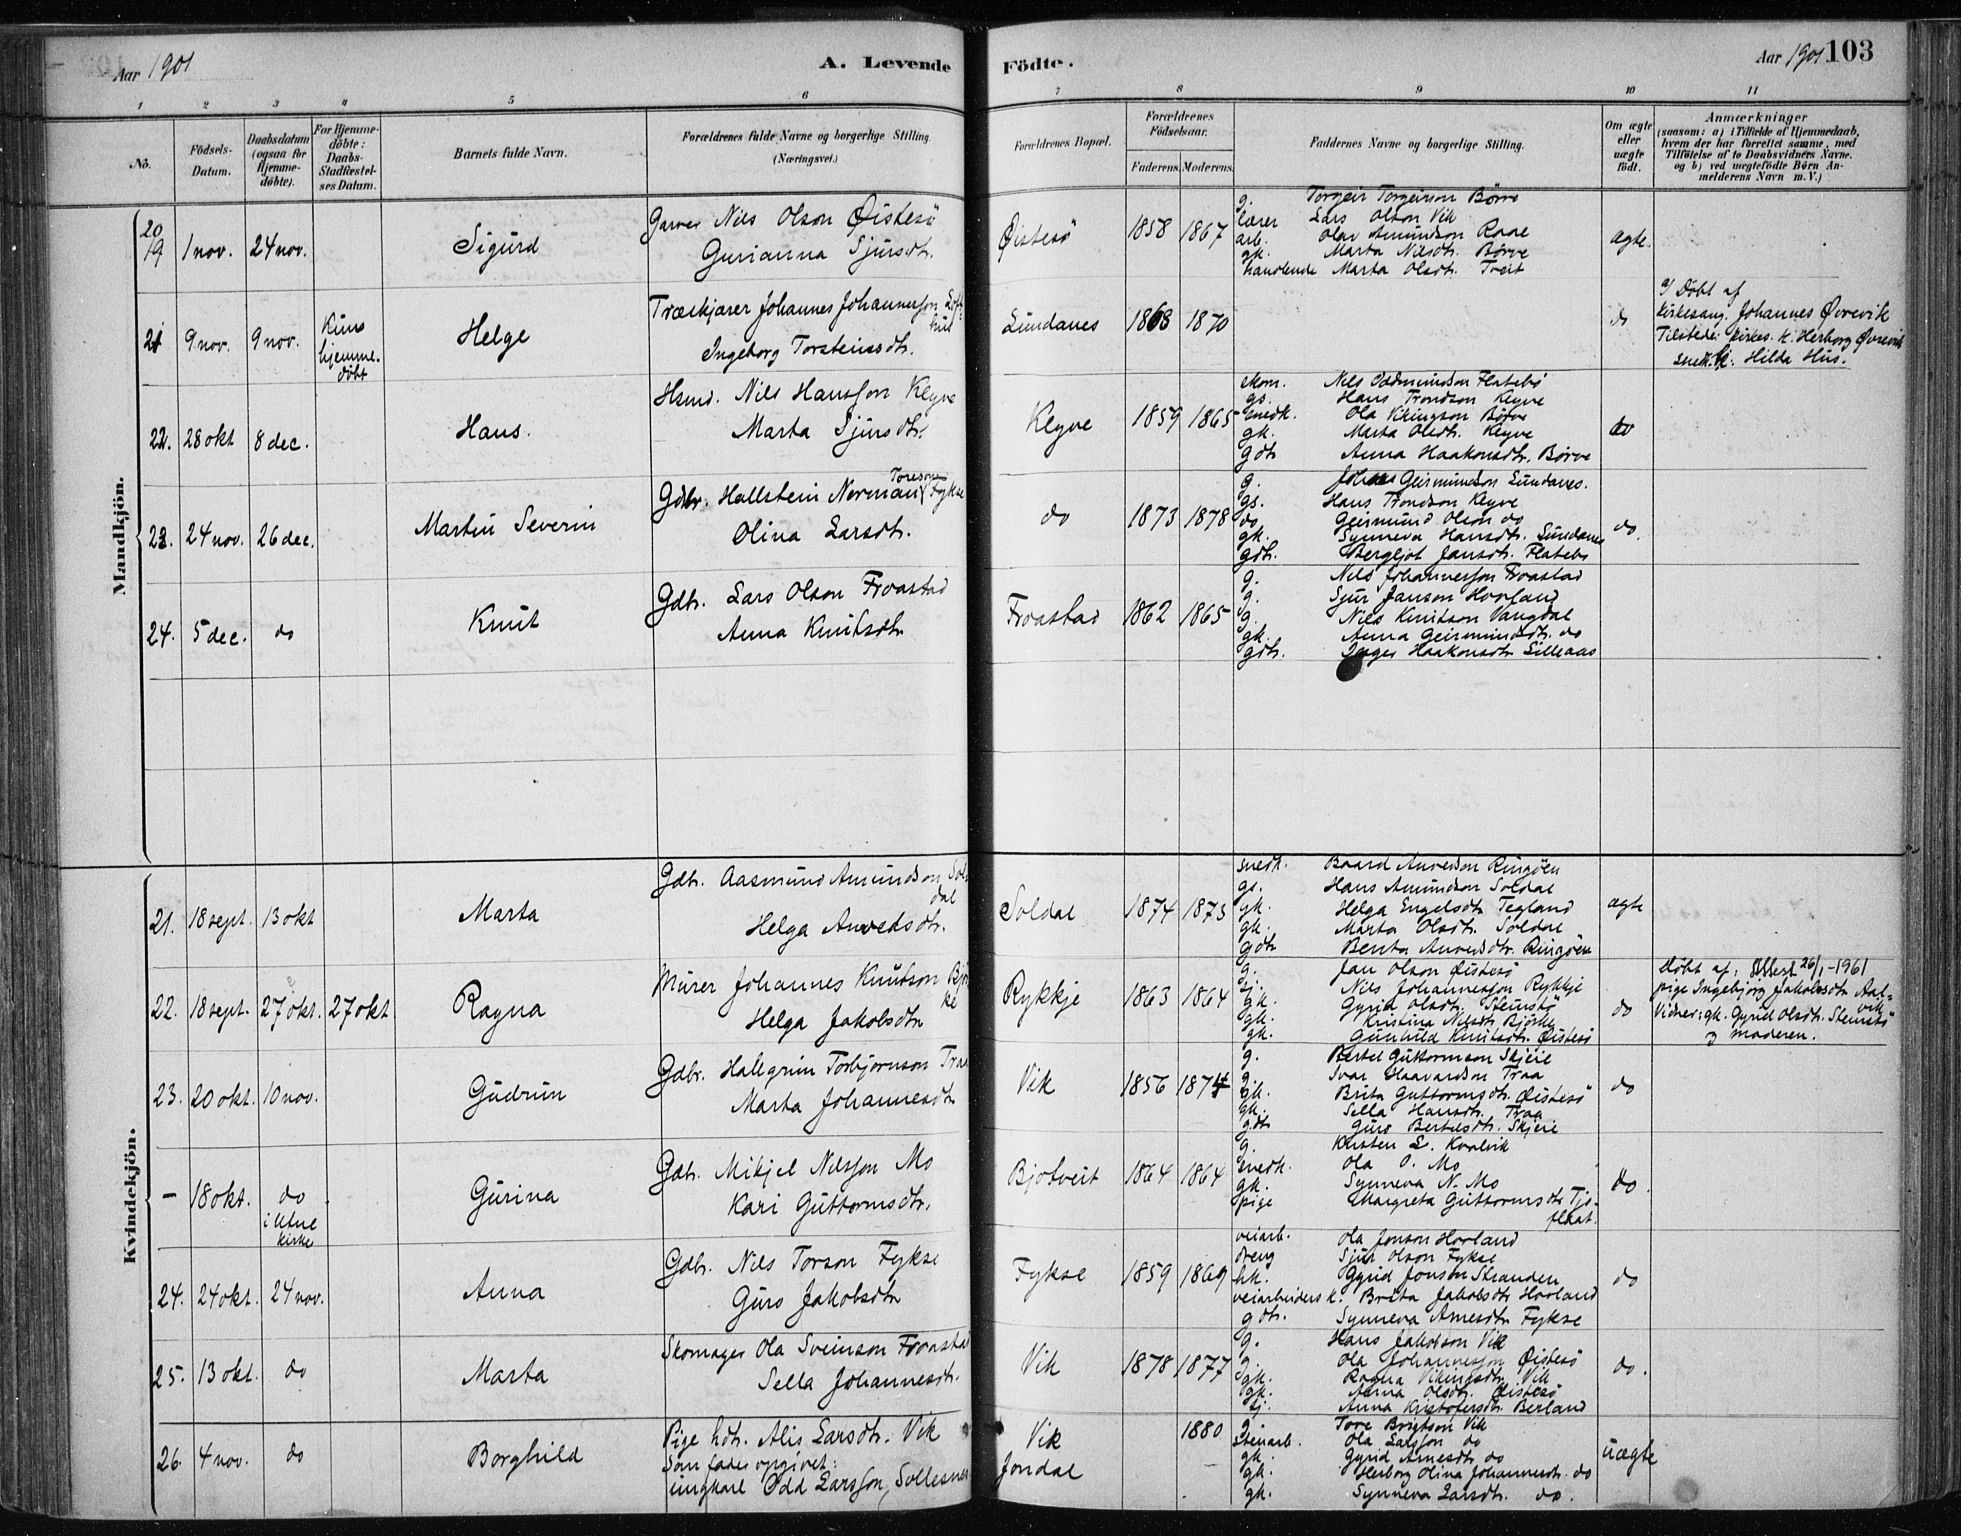 Aar 1901
A. Levende
Födte.
Aar 1901 103
1 2 3 4 5 6 7 8 9 10 11
No.
Födsels-Datum.
Daabsdatum (ogsaa for Hjemme-döbte).
For Hjemme-döbte: Daabs-Stadfæstel-ses Datum.
Barnets fulde Navn.
Forældrenes fulde Navne og borgerlige Stilling. (Næringsvei.)
Forældrenes Bopæl.
Forældrenes Födselsaar.
Faderens. Moderens.
Faddernes Navne og borgerlige Stilling.
Om ægte eller uægte födt.
Anmærkninger
(saasom: a) i Tilfælde af Hjemmedaab,
hvem der har forrettet samme, med
Tilföielse af to Daabsvidners Navne.
og b) ved uægtefödte Börn An-
melderens Navn m. V.)
Mandkjön.
20
19 1 nov. 24 nov. Sigurd
Garver Nils Olson Øistesö
Gurianna Sjursdtr.
Øistesö 1858 1867
g. Torgeir Torgeirson Børve
lærer Lars Olson Vik
arb. Olav Amundson Raae
gk. Marta Nilsdtr. Børve
handlende Marta Olsdtr. Treit
ægte.
21 9 nov. 9 nov. Kun hjemme-döbt
Helge
Træskjærer Johannes Johannesson
Ingeborg Torsteinsdtr.
Lundanes 1868 1870
do
Döbt af
kirkesang. Johannes Øvrevik
Tilstede: kirkes. k. Herborg Øvrevik
snedk. k. Hilda Hus.
22. 28 okt 8 dec. Hans.
Hsmd. Nils Hansson Kleyve
Marta Sjursdtr.
Kleyve 1859 1865
skom. Nils Oddmundson Flatebö
gs. Hans Trondson Kleyve
snedk. Ola Vikingson Børve
gk. Marta Olsdtr. Kleyve
gdtr Anna Haakonsdtr. Børve
do
23. 24 nov. 26 dec. Martin Severin
Gdbr. Hallstein Norman Toreson Fykse
Olina Larsdtr.
do 1873 1878
g. Johans Geirmundson Lundanes.
gs. Hans Trondson Kleyve
do Geirmund Olson do
gk. Synneva Hansdtr. Lundanes
gdtr. Bergljot Jansdtr. Flatebö
do.
24. 5 dec. do Knut
Gdbr. Lars Olson Froastad
Anna Knutsdtr
Froastad 1862 1865
g. Nils Johannesson Froastad
g. Sjur Janson Hovland
g. Nils Knutson Vangdal
gk. Anna Geirmundsdtr. do
gdtr. Inger Haakonsdtr Lilleaas
Kvindekjön.
21. 18 sept. 13 okt Marta
Gdbr. Aasmund Amundson Sol
dal
Helga Anvedsdtr.
Soldal 1874 1873
snedk. Baard Anvedson Ringöen
gs. Hans Amundson Soldal
gk. Helga Engelsdtr Tegland
gk. Marta Olsdtr. Soldal
gdtr Berita Anvedsdtr. Ringöen
ægte
22. 18 sept. 27 okt. 27 okt Ragna
Murer Johannes Knutson Björ
ke
Helga Jakobsdtr
Rykkje 1863 1864
g. Jan Olson Øistesö
g. Nils Johannesson Rykkje
gk. Gyrid Olsdtr. Steinstö
gk. Kristina Nilsdtr Björke
gk. Gunhild Knutsdtr. Øistesö
do
döbt af: Attest 26/1-1961
pige Ingebjorg Jakobsdtr Aal-
vik
Vidner: gk. Gyrid Olsdtr. Steinstö
og moderen.
23. 20 okt. 10 nov. Gudrun
Gdbr. Hallgrim Torbjornson Traa
Marta Johannesdtr
Vik 1856 1874
g. Bertel Guttormson Skjeie
g. Ivar Haavardson Traa
gk. Brita Guttormsdtr. Øistesö
gk. Sella Hansdtr. Traa
gdtr Guro Bertelsdtr. Skjeie
do
- 18 okt. do i Utne kirke
Gurina
Gdbr. Mikjel Nilsson Mo
Kari Guttormsdtr.
Bjotveit 1864 1864
g. Kristen L. Kvalvik
snedk. Ola O. Mo
gk. Synneva N. Mo
pige Margreta Guttormsdtr Tjo-
flaat.
do.
24. 24 okt. 24 nov. Anna
Gdbr. Nils Torson Fykse
Guro Jakobsdtr
Fykse 1859 1869
veiarb. Ola Jonson Hovland
dreng Sjur Olson Fykse
hk. Gyrid Jonson Stranden
veiarbeiders k. Brita Jakobsdtr Hovland
gdtr. Synneva Arnesdtr Fykse
do
25. 13 okt. do Marta
Skomager Ola Sveinson Froastad
Sella Johannesdtr.
Vik 1878 1877
g. Hans Jakobson Vik
g. Ola Johannesson Øistesö
gk. Ragna Vikingsdtr. Vik
gk. Anna Olsdtr. Øistesö
tj. Anna Kristofersdtr Berland
do.
26. 4 nov. do Borghild
Pige hdtr. Alis Larsdtr. Vik
Som fader opgivet:
ungkarl Odd Larsson, Sollesnes
Vik
Jondal 1880
g. Tore Brigtson Vik
stenarb. Ola Larsson do
gk. Gyrid Arnesdtr do
gk. Herborg Olina Johannesdtr. do
gk. Synneva Larsdtr. do.
uægte